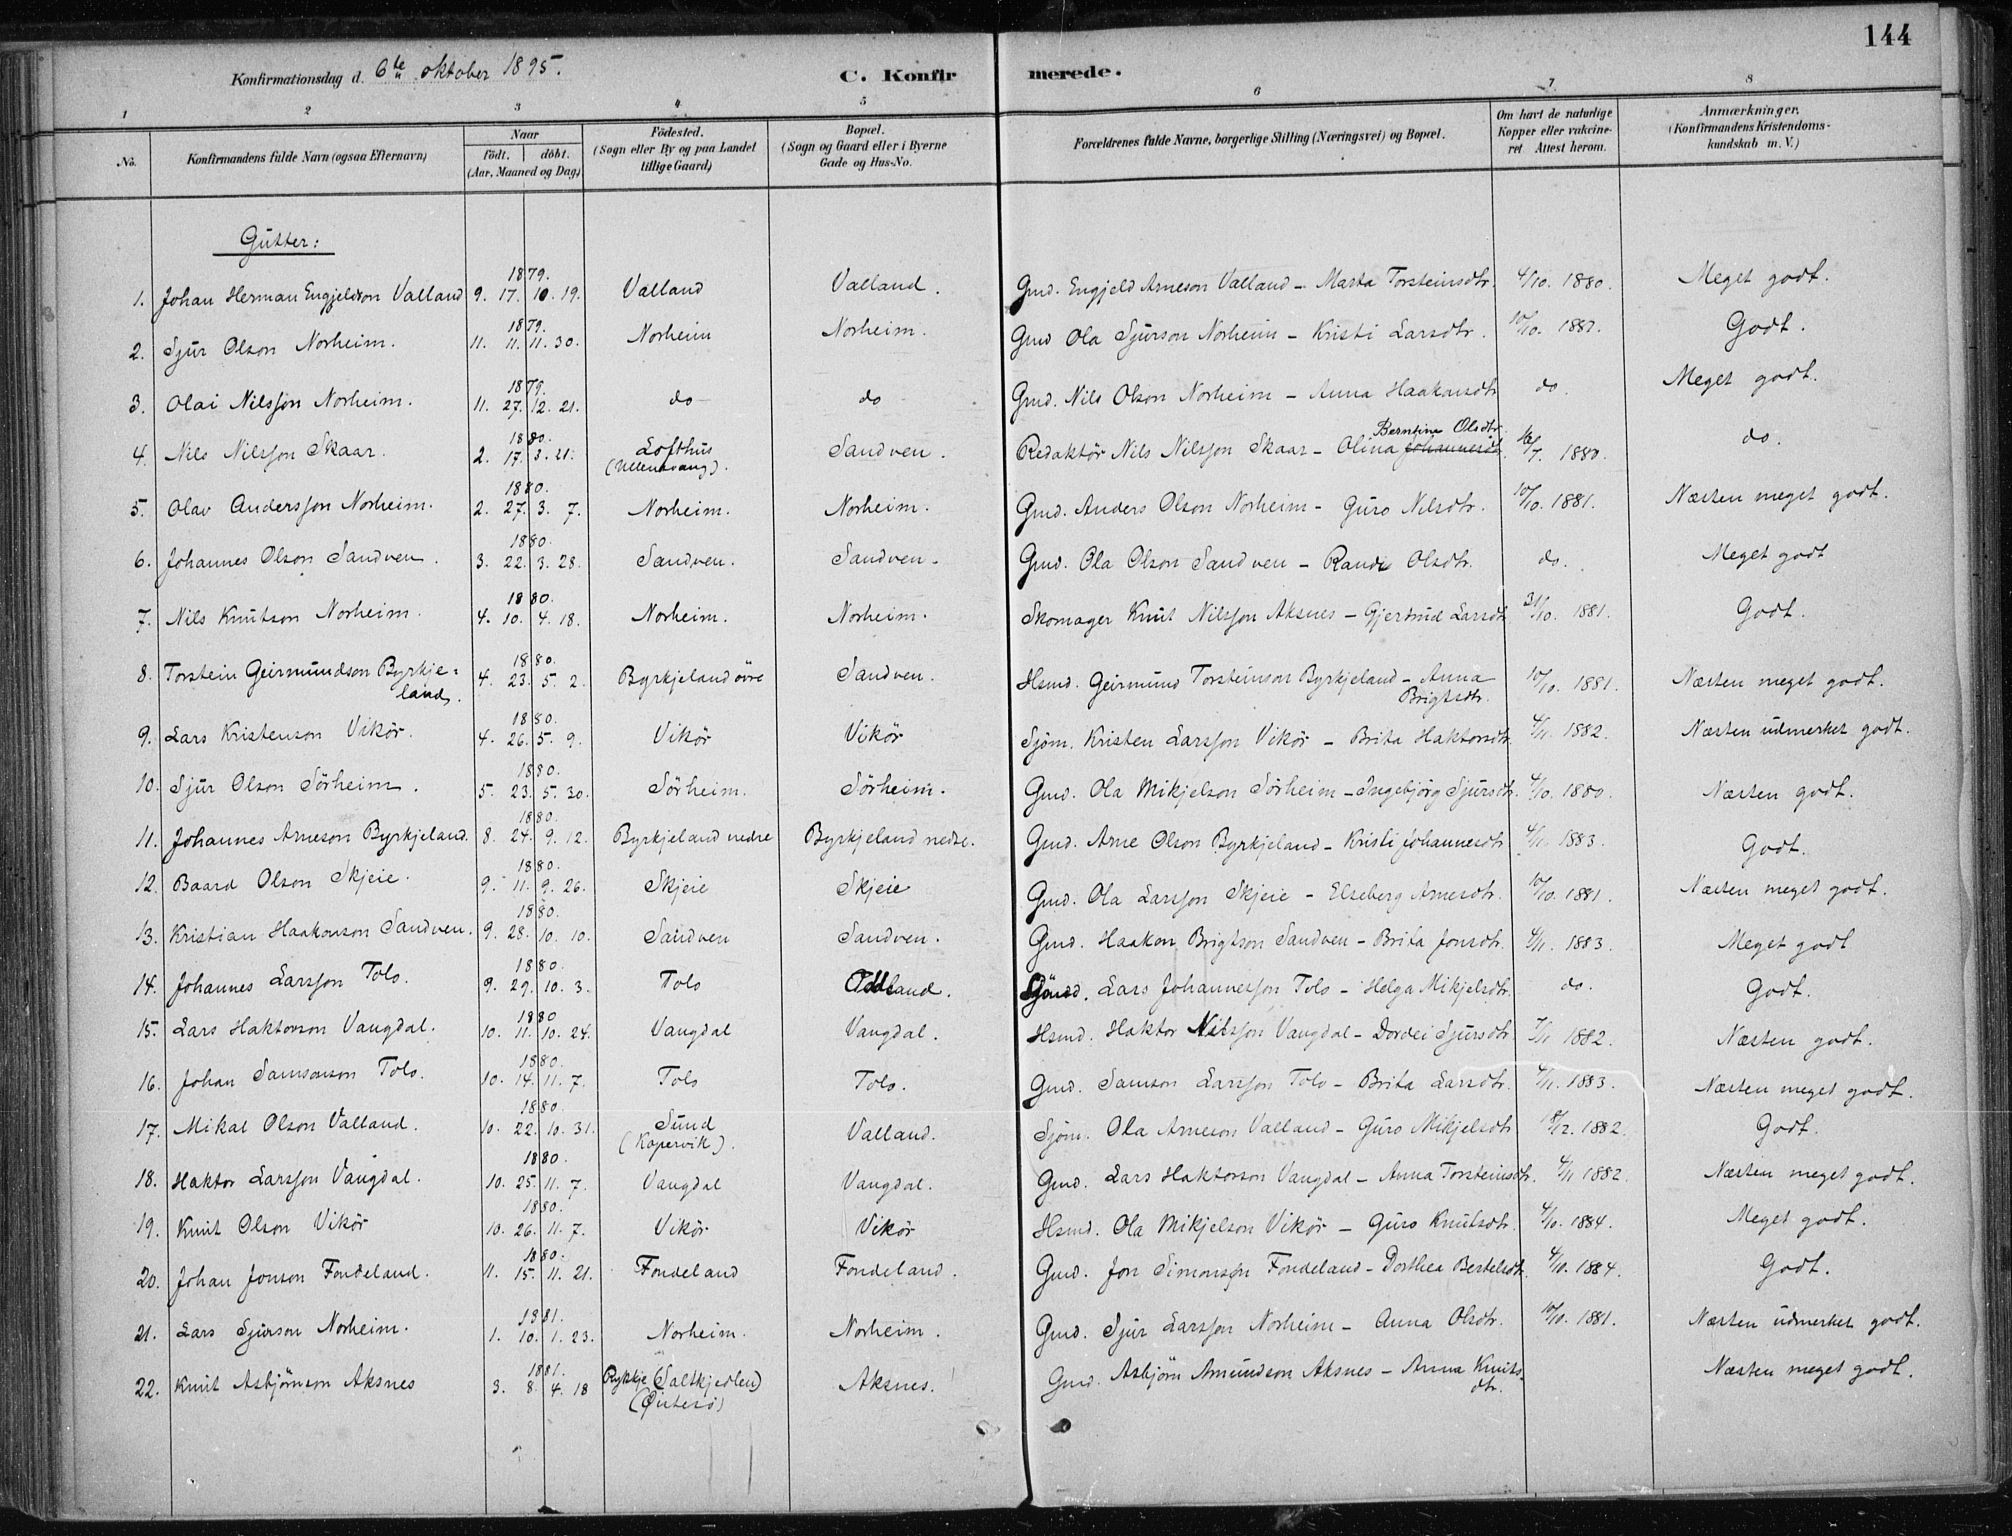 144
Konfirmationsdag d. 6te oktober 1895.
C. Konfirmerede.
1 2 3 4 5 6 7 8
No. Konfirmandens fulde Navn (ogsaa Efternavn) Naar født. døbt. (Aar, Maaned og Dag) Fødested. (Sogn eller By og paa Landet tillige Gaard) Bopæl. (Sogn og Gaard eller i Byerne Gade og Hus-No. Forældrenes fulde Navne, borgerlige Stilling (Næringsvei) og Bopæl. Om havt de naturlige Kopper eller vakcineret. Attest herom. Anmærkninger. (Konfirmandens Kristendomskundskab m. V.)
Gutter:
1. Johan Herman Engjeldson Valland 1879. 9. 17. 10. 19. Valland Valland. Gmd. Engjeld Arneson Valland - Marta Torsteinsdtr. 4/10. 1880. Meget godt.
2. Sjur Olson Norheim. 1879. 11. 11. 11. 30. Norheim Norheim. Gmd Ola Sjurson Norheim - Kristi Larsdtr. 10/10. 1881. Godt.
3. Olai Nilsson Norheim. 1879. 11. 27. 12. 21. do do Gmd. Nils Olson Norheim - Anna Haakonsdtr do. Meget godt.
4. Nils Nilsson Skaar. 1880. 2. 17. 3. 21. Lofthus (Ullensvang). Sandven. Redaktör Nils Nilsson Skaar - Olina Johannesdtr. Berntine Olsdtr. /7. 1880. do.
5. Olav Andersson Norheim. 1880. 2. 27. 3. 7. Norheim. Norheim. Gmd. Anders Olson Norheim - Guro Nilsdtr. 10/10. 1881. Næsten meget godt.
6. Johannes Olson Sandven. 1880. 3. 22. 3. 28. Sandven. Sandven. Gmd. Ola Olson Sandven - Randi Olsdtr. do. Meget godt
7. Nils Knutson Norheim. 1880. 4. 10. 4. 18. Norheim. Norheim. Skomager Knut Nilsson Aksnes - Gjertrud Larsdtr 31/10. 1881. Godt.
8. Torstein Geirmundson Byrkje=land. 1880. 4. 23. 5. 2. Byrkjeland övre Sandven. Hsmd. Geirmund Torsteinson Byrkjeland - Anna Brigtsdtr. 10/10. 1881. Næsten meget godt.
9. Lars Kristenson Vikör. 1880. 4. 26. 5. 9. Vikör Vikör Sjöm. Kristen Larsson Vikör - Brita Haktorsdtr. 4/11. 1882. Næsten udmerket godt.
10. Sjur Olson Sörheim. 1880. 5. 23. 5. 30. Sörheim. Sörheim. Gmd. Ola Mikjelson Sörheim - Ingebjörg Sjursdtr. 4/10. 1880. Næsten godt.
11. Johannes Arneson Byrkjeland. 1880. 8. 24. 9. 12. Byrkjeland nedre Byrkjeland nedre. Gmd. Arne Olson Byrkjeland - Kristi Johannesdtr 4/11. 1883. Godt.
12. Baard Olson Skjeie. 1880. 9. 11. 9. 26. Skjeie Skjeie Gmd. Ola Larsson Skjeie - Elseberg Arnesdtr. 10/10. 1881. Næsten meget godt.
13. Kristian Haakonson Sandven. 1880. 9. 28. 10. 10. Sandven Sandven. Gmd. Haakon Brigtson Sandven - Brita Jonsdtr. 4/11. 1883. Meget godt
14. Johannes Larsson Tolo. 1880. 9. 29. 10. 3. Tolo land. Lars Johannesson Tolo - Helga Mikjelsdtr. do. Godt.
15. Lars Haktorson Vangdal. 1880 10. 11. 10. 24. Vangdal Vangdal. Hsmd. Haktor Nilsson Vangdal - Dordei Sjursdtr. 7/11 1882. Næsten godt.
16. Johan Samsonson Tolo. 1880. 10. 14. 11. 7. Tolo Tolo. Gmd. Samson Larsson Tolo - Brita Larsdtr. 4/11. 1883. Næsten meget godt.
17. Mikal Olson Valland. 1880. 10. 22. 10. 31. Sund (Kopervik). Valland. Sjöm. Ola Arneson Valland - Guro Mikjelsdtr 18/12. 1882. Godt.
18. Haktor Larsson Vangdal. 1880. 10. 25. 11. 7. Vangdal Vangdal. Gmd. Lars Haktorson Vangdal - Anna Torsteinsdtr. 4/11 1882. Næsten meget godt.
19. Knut Olson Vikör 1880. 10. 26. 11. 7. Vikör Vikör Hsmd. Ola Mikjelson Vikör - Guro Knutsdtr. 4/10. 1884. Meget godt.
20. Johan Jonson Fondeland. 1880. 11. 15. 11. 21. Fondeland Fondeland. Gmd. Jon Simonson Fondeland - Dorthea Bertelsdtr. 4/10. 1884. Godt.
21. Lars Sjurson Norheim. 1881. 1. 10. 1. 23. Norheim. Norheim. Gmd. Sjur Larsson Norheim - Anna Olsdtr. 10/10. 1881. Næsten udmerket godt.
22. Knut Asbjörnson Aksnes 1881. 3. 8. 4. 18 Rykkje (Saltkjedlen) (Östesö) Aksnes. Gmd. Asbjörn Amundson Aksnes - Anna Knutsdtr. Næsten meget godt.